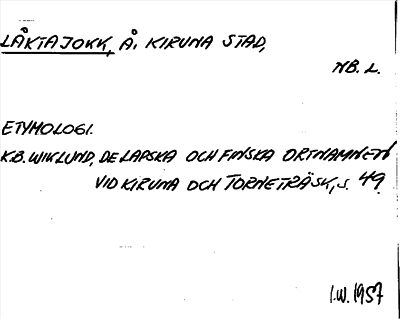 LÅKTAJOKK, Å. KIRUNA STAD,
NB. L.
ETYMOLOGI.
K.B. WIKLUND, DE LAPSKA OCH FINSKA ORTNAMNEN
VID KIRUNA OCH TORNETRÄSK, s. 49.
I.W. 1957